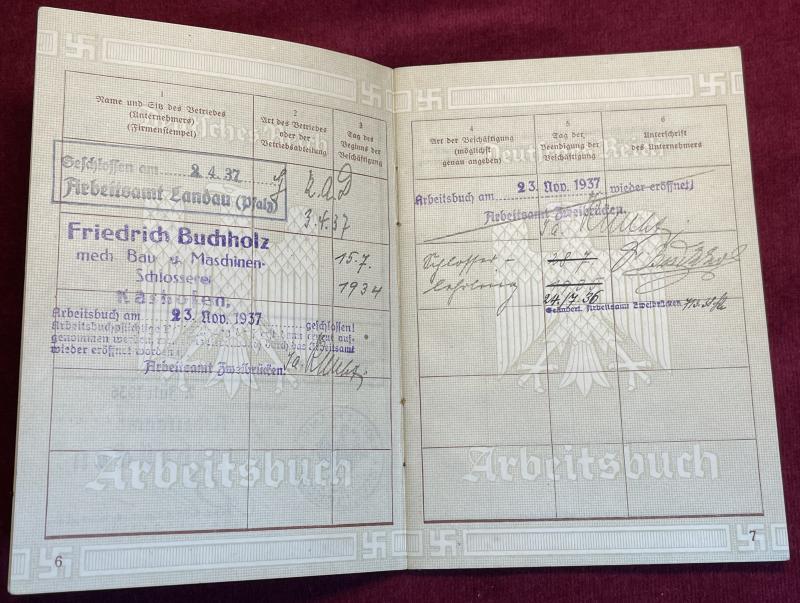 1
Name und Sitz des Betriebes
(Unternehmers)
(Firmenstempel)
2
Art des Betriebes
oder der
Betriebsabteilung
3
Tag des
Beginns der
Beschäftigung
Deutsches Reich
Geschlossen am 2.4.37
Arbeitsamt Landau (Pfalz)
R.A.D
3.4.37
Friedrich Buchholz
mech Bau u. Maschinen-
Schlosserei
15.7.
1934
Arbeitsbuch am 23. Nov. 1937 geschlossen!
Arbeitsbuchpflichtige
genommen werden durch das Arbeitsamt
wieder eröffnet worden
Arbeitsamt Zweibrücken!
Arbeitsbuch
6
4
Art der Beschäftigung
(möglichst
genau angeben)
5
Tag der
Beendigung der
Beschäftigung
6
Unterschrift
des Unternehmers
Deutsches Reich
Arbeitsbuch am 23. Nov. 1937 wieder eröffnet!
Arbeitsamt Zweibrücken.
Schlosser-
lehrling
24./7.36
Geändert. Arbeitsamt Zweibrücken
Arbeitsbuch
7